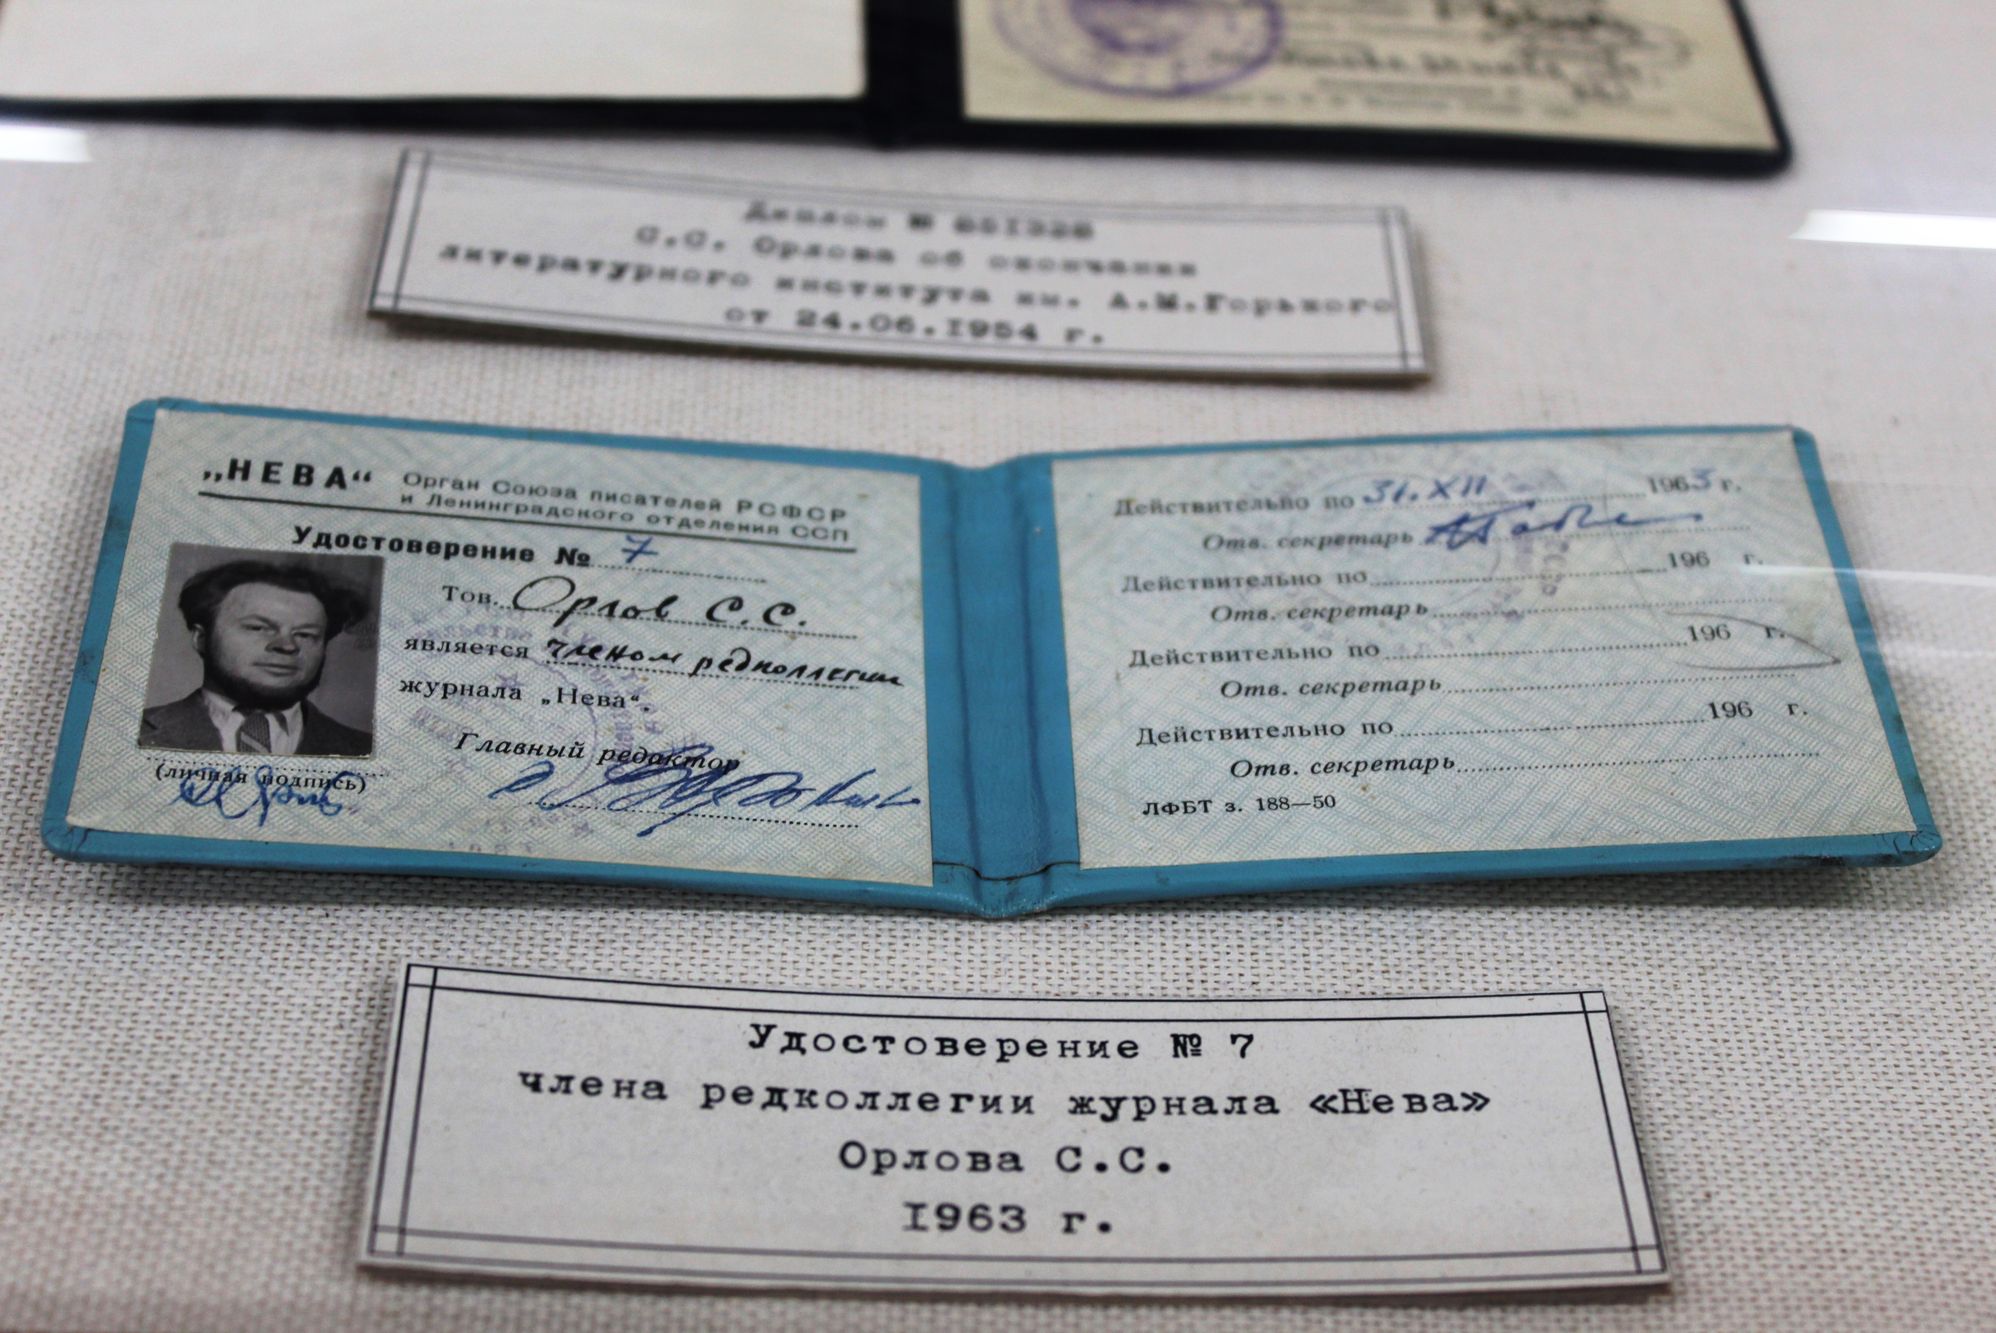 Диплом №
С.С. Орлова об окончании
литературного института им. А.М.Горького
от 24.06.1954 г.
„НЕВА“ Орган Союза писателей РСФСР
и Ленинградского отделения ССП
Удостоверение № 7
Тов. Орлов С.С.
является членом редколлегии
журнала „Нева“.
Главный редактор
(личная подпись)
Действительно по 31.XII 1963 г.
Отв. секретарь
Действительно по 196 г.
Отв. секретарь
Действительно по 196 г.
Отв. секретарь
Действительно по 196 г.
Отв. секретарь
ЛФБТ з. 188—50
Удостоверение № 7
члена редколлегии журнала «Нева»
Орлова С.С.
1963 г.